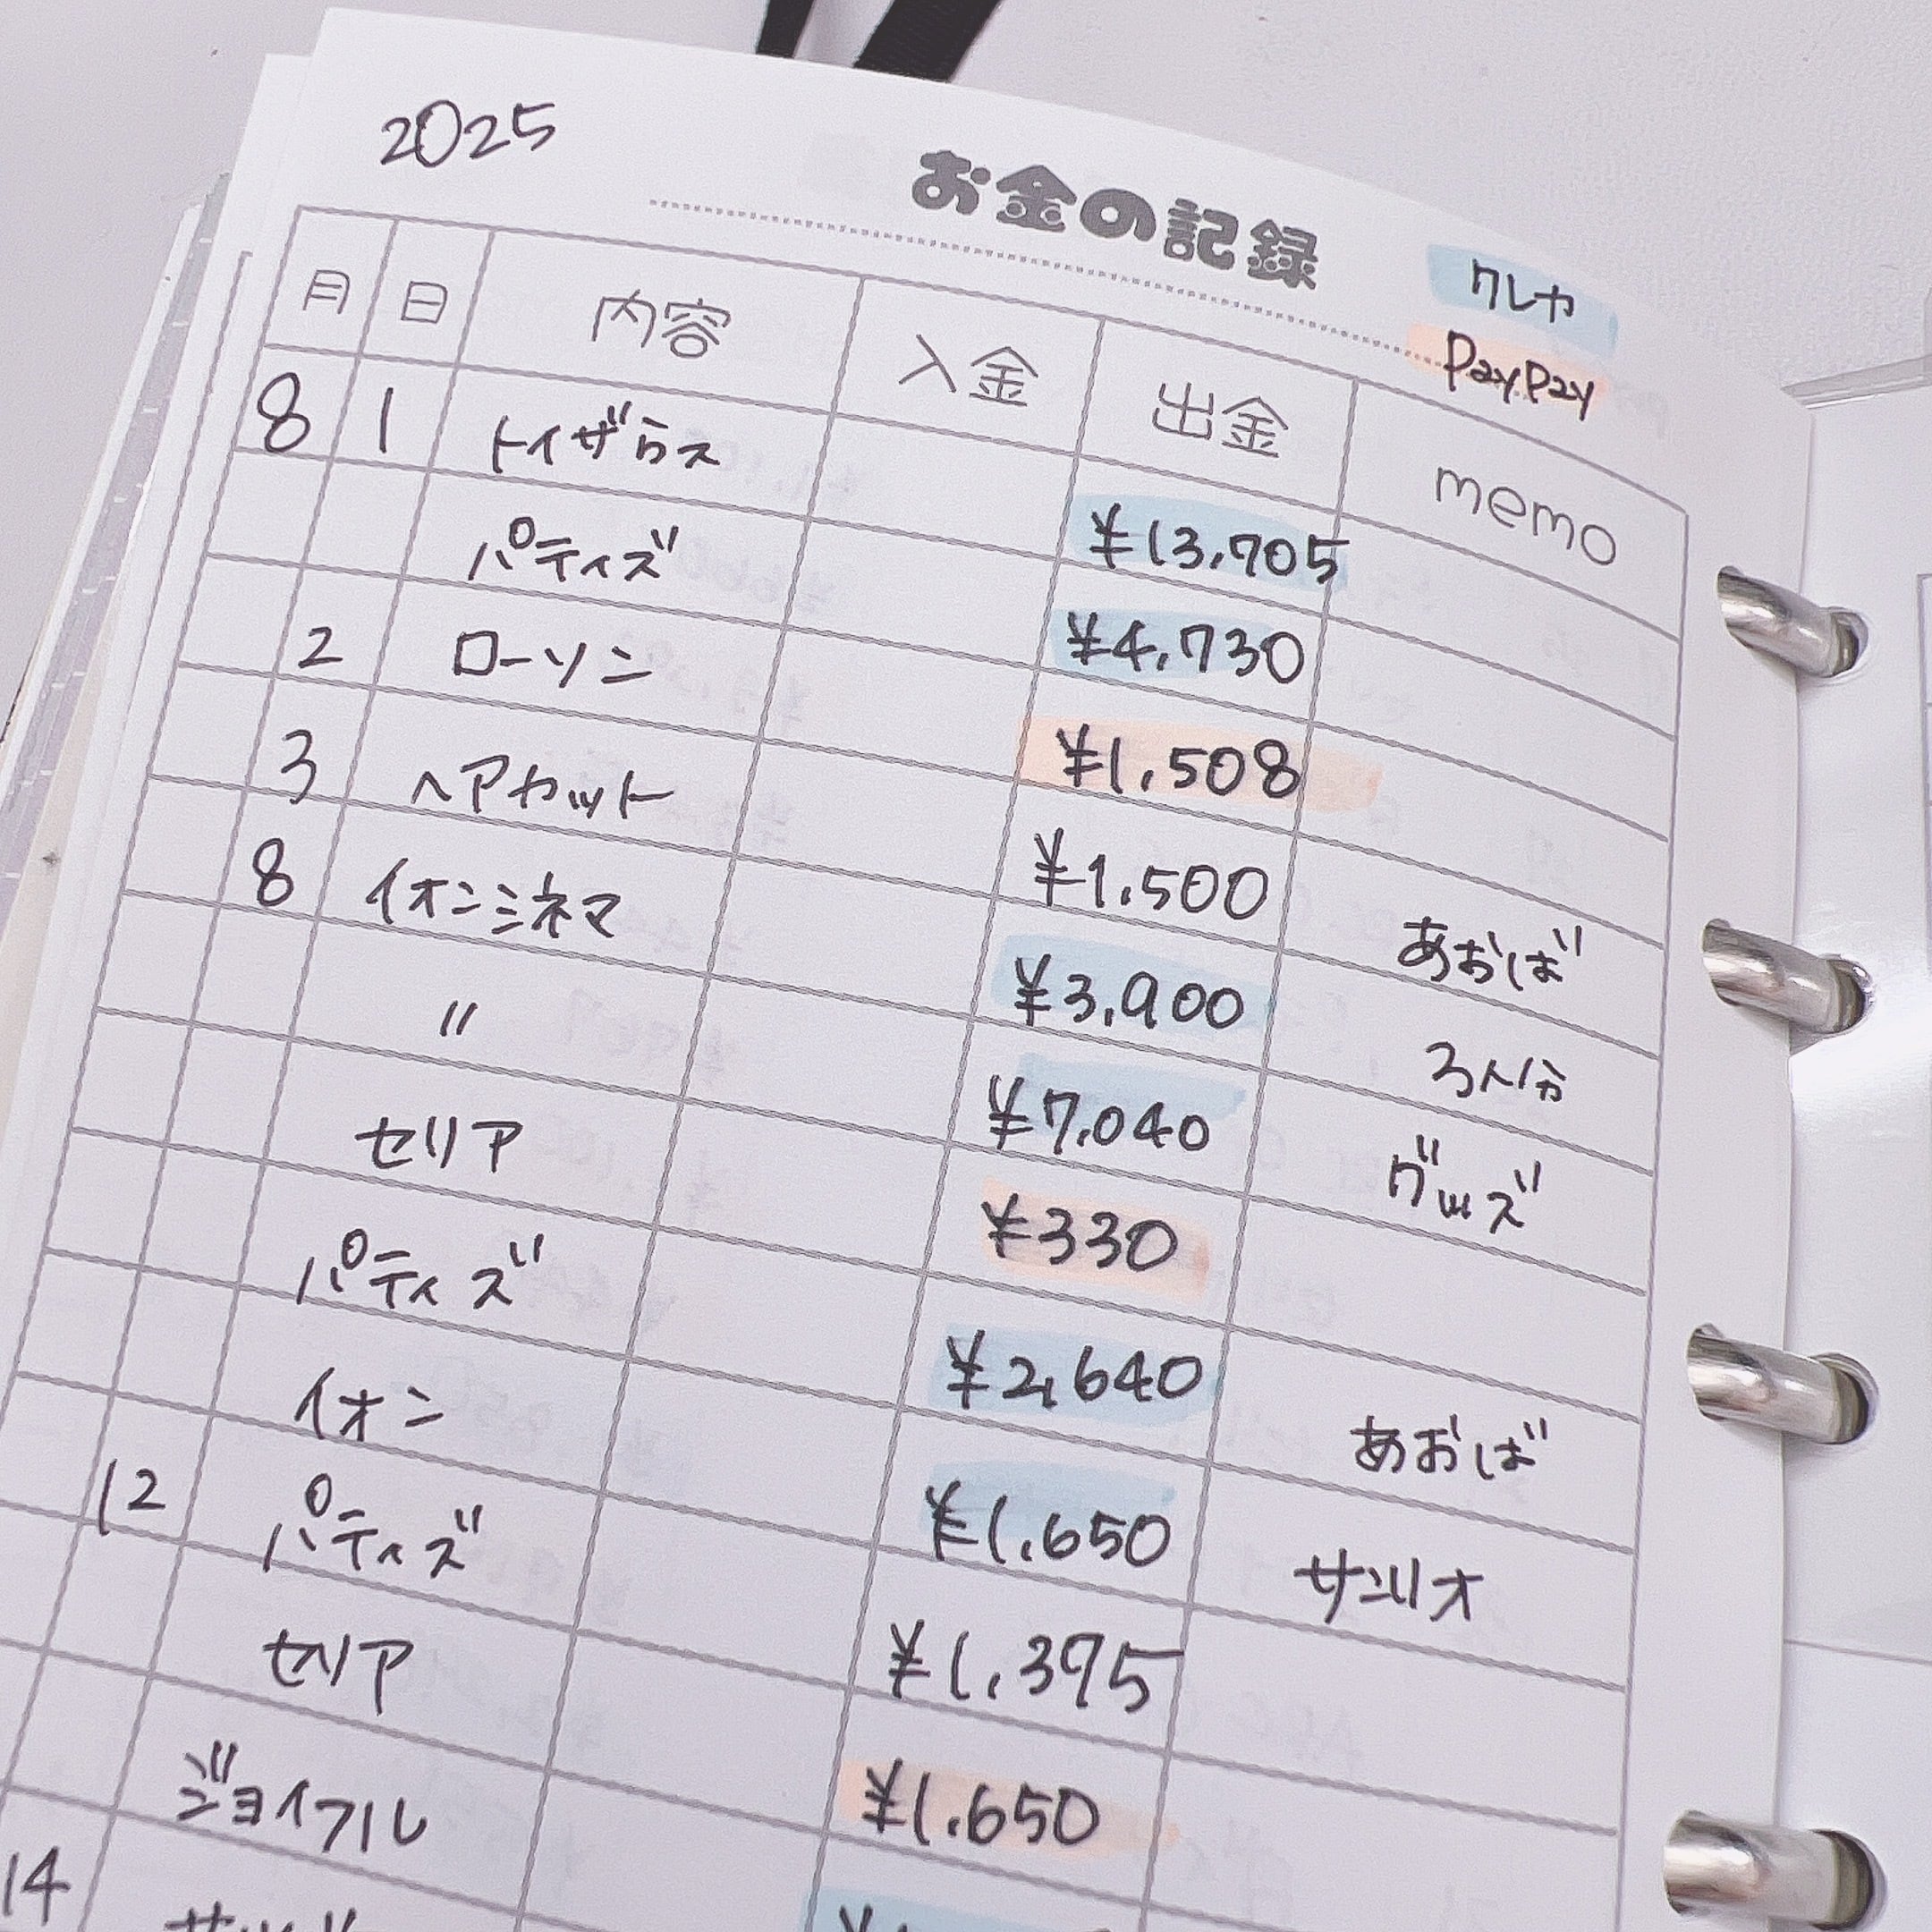 2025
お金の記録
クレカ
PayPay
月 日 内容 入金 出金 memo
8 1 トイザらス ¥13,705
パティズ ¥4,730
2 ローソン ¥1,508
3 ヘアカット ¥1,500 あおば
8 イオンシネマ ¥3,900 3人分
〃 ¥7,040 グッズ
セリア ¥330
パティズ ¥2,640 あおば
イオン ¥1,650 サンリオ
12 パティズ ¥1,395
セリア ¥1,650
ジョイフル
14